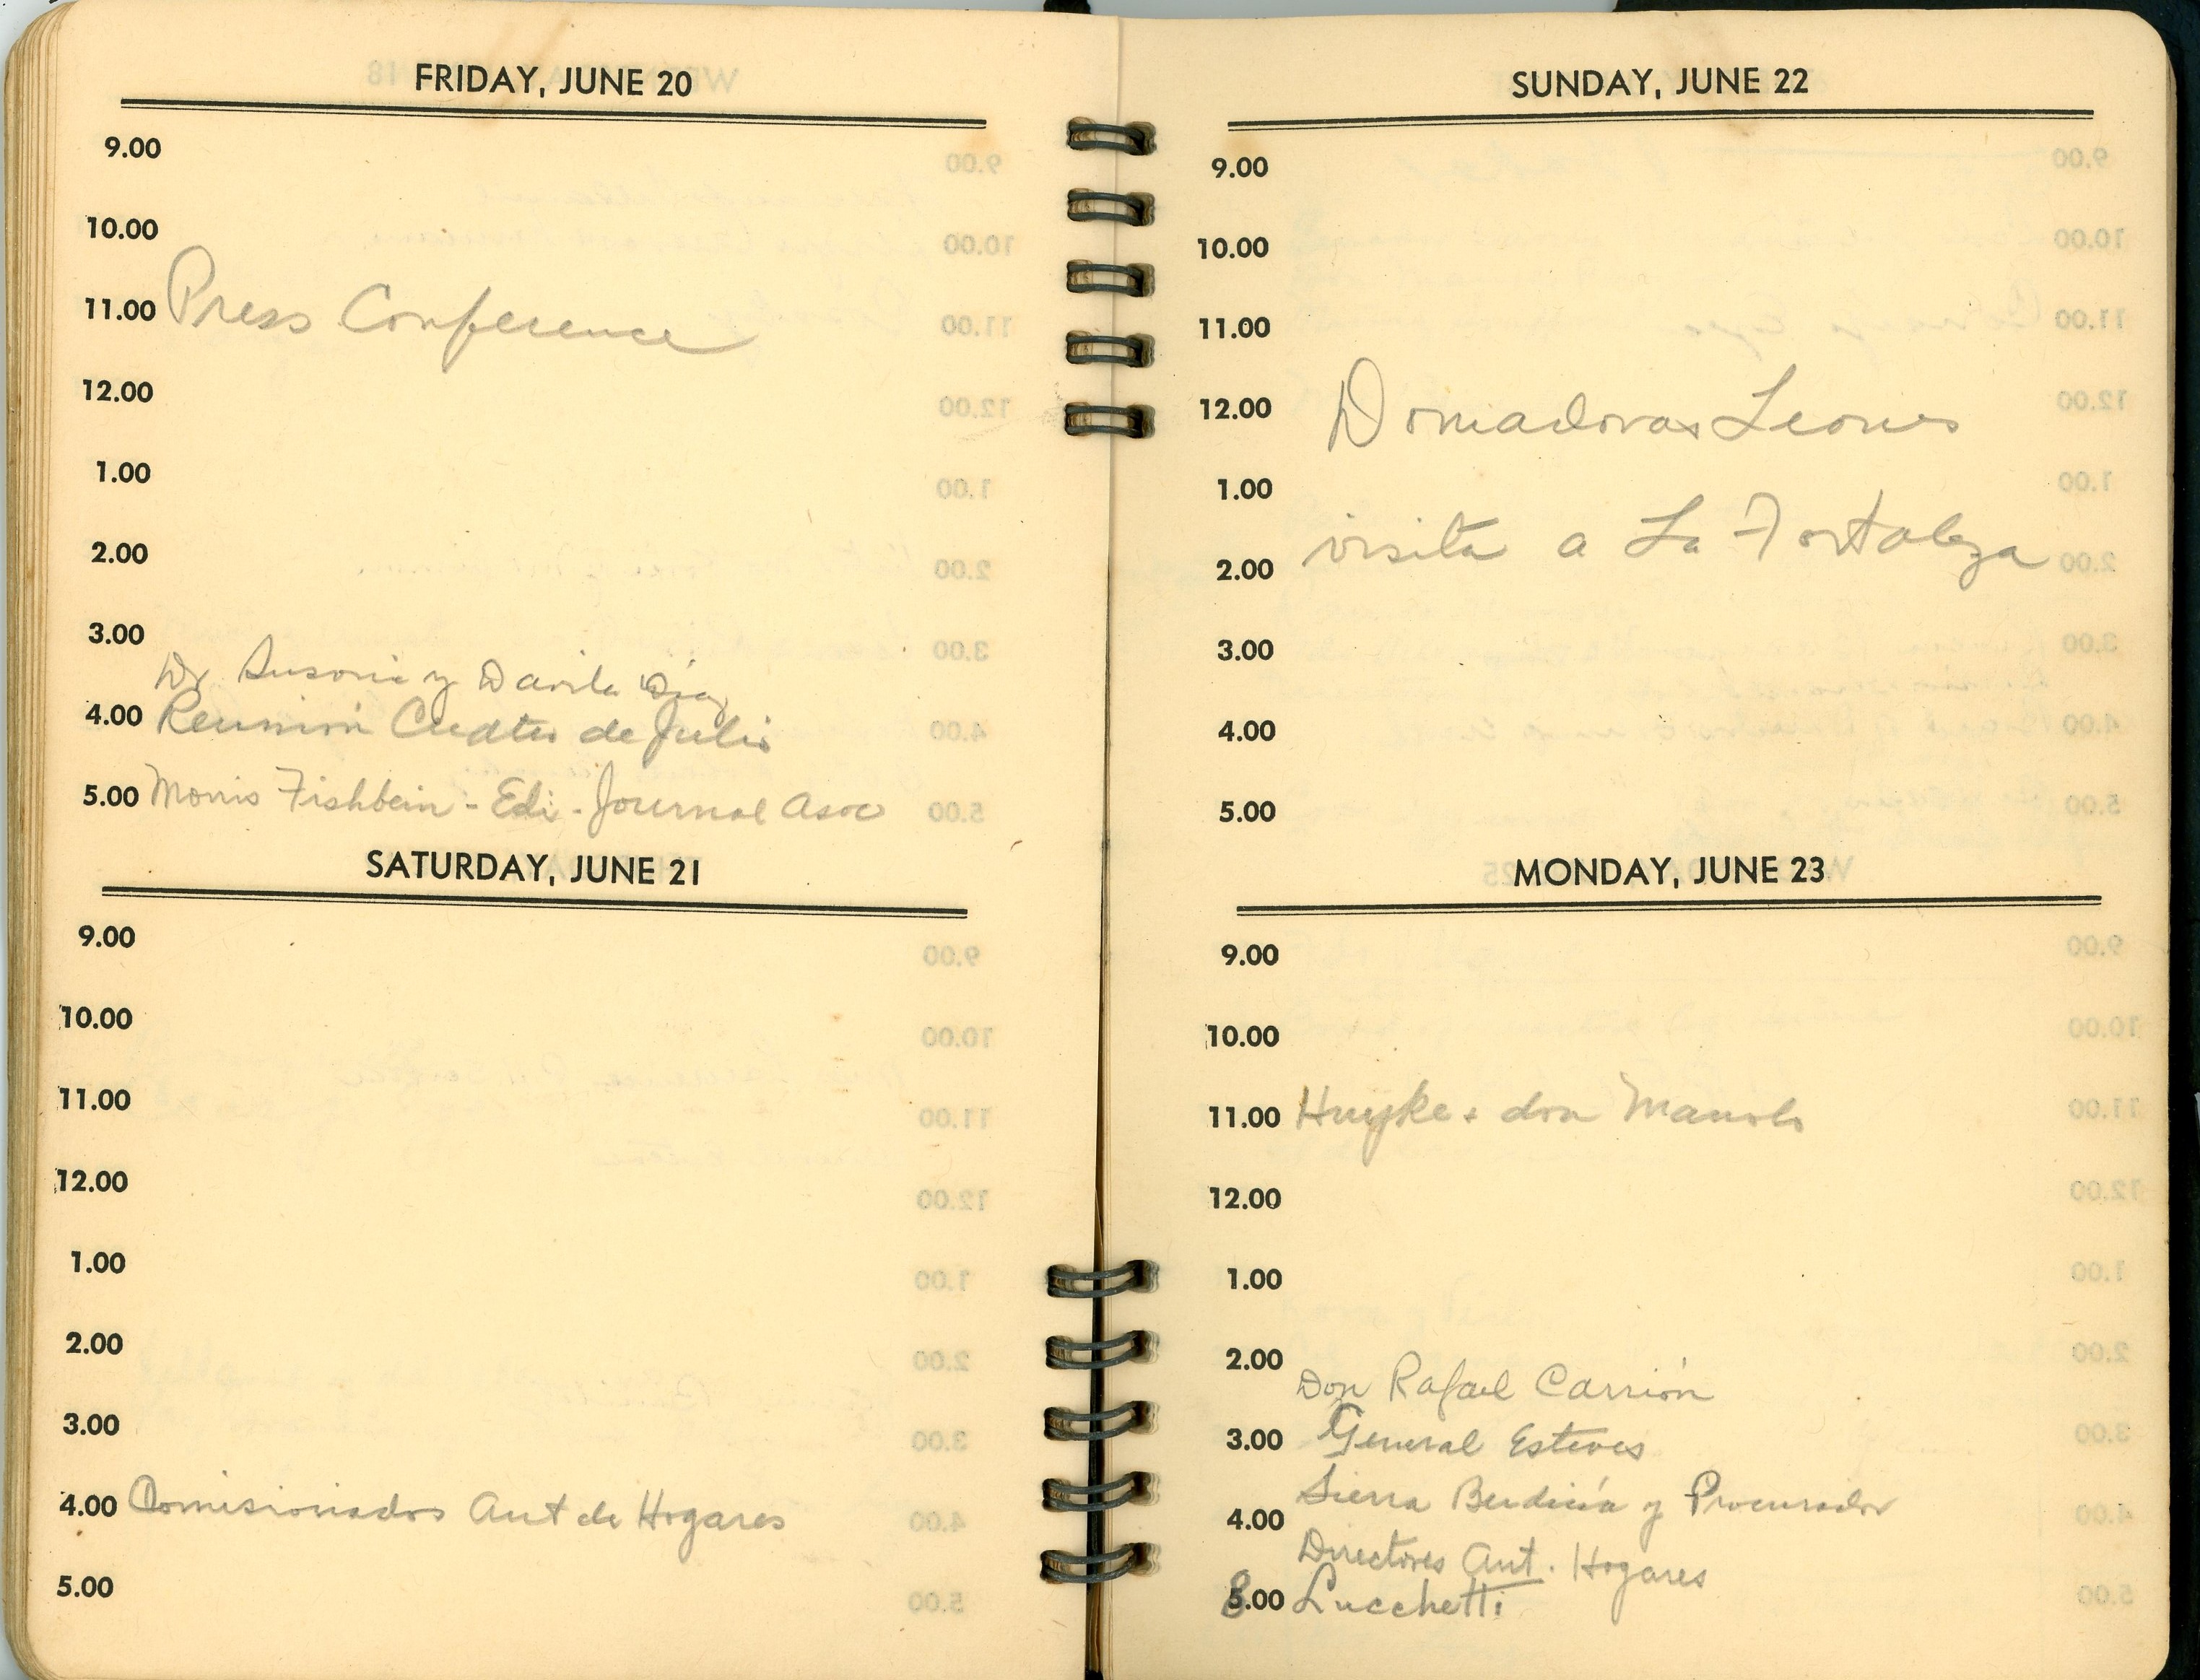 FRIDAY, JUNE 20
9.00
10.00
11.00 Press Conference
12.00
1.00
2.00
3.00
Dr Susoni y Davila Diaz
4.00 Reunión Cuatro de Julio
5.00 Morris Fishbein - Edi - Journal Asoc
SATURDAY, JUNE 21
9.00
10.00
11.00
12.00
1.00
2.00
3.00
4.00 Comisionados Aut de Hogares
5.00
SUNDAY, JUNE 22
9.00
10.00
11.00
12.00 Domadoras Leones
1.00
2.00 visita a La Fortaleza
3.00
4.00
5.00
MONDAY, JUNE 23
9.00
10.00
11.00 Huyke + don Manolo
12.00
1.00
2.00
Don Rafael Carrión
3.00 General Esteves
Sierra Berdecía y Procurador
4.00
Directores Aut. Hogares
8.00 Lucchetti